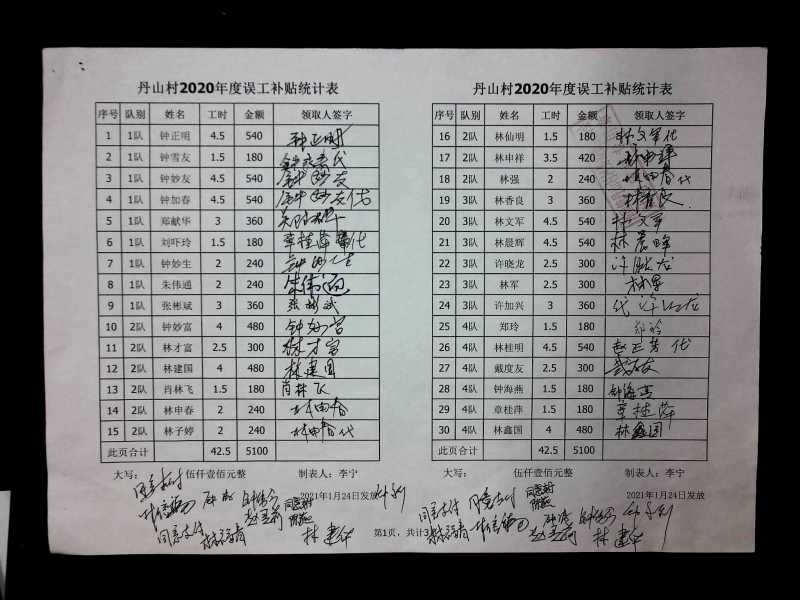 丹山村2020年度误工补贴统计表
序号 队别 姓名 工时 金额 领取人签字
1 1队 钟正明 4.5 540 钟正明
2 1队 钟雪友 1.5 180
3 1队 钟妙友 4.5 540 钟妙友
4 1队 钟加春 4.5 540 钟妙友代
5 1队 郑献华 3 360
6 1队 刘吓玲 1.5 180 章桂萍代
7 1队 钟妙生 2 240 钟妙生
8 1队 朱伟通 2 240 朱伟通
9 1队 张彬斌 3 360 张彬斌
10 2队 钟妙富 4 480 钟妙富
11 2队 林才富 2.5 300 林才富
12 2队 林建国 4 480 林建国
13 2队 肖林飞 1.5 180 肖林飞
14 2队 林申春 2 240 林申春
15 2队 林子婷 2 240 林申春代
此页合计 42.5 5100
大写： 伍仟壹佰元整 制表人：李宁
2021年1月24日发放
同意支付
林建华
丹山村2020年度误工补贴统计表
序号 队别 姓名 工时 金额 领取人签字
16 2队 林仙明 1.5 180 林文军代
17 2队 林申祥 3.5 420 林申祥
18 2队 林强 2 240 林申春代
19 3队 林香良 3 360 林香良
20 3队 林文军 4.5 540 林文军
21 3队 林晨辉 4.5 540 林晨晖
22 3队 许晓龙 2.5 300 许晓龙
23 3队 林军 2.5 300 林军
24 3队 许加兴 3 360 代 许晓龙
25 4队 郑玲 1.5 180 郑玲
26 4队 林桂明 4.5 540 赵正芳代
27 4队 戴度友 2.5 300 戴度友
28 4队 钟海燕 1.5 180 钟海燕
29 4队 章桂萍 1.5 180 章桂萍
30 4队 林鑫国 4 480 林鑫国
此页合计 42.5 5100
大写： 伍仟壹佰元整 制表人：李宁
2021年1月24日发放
同意支付
林建华
第1页，共计3